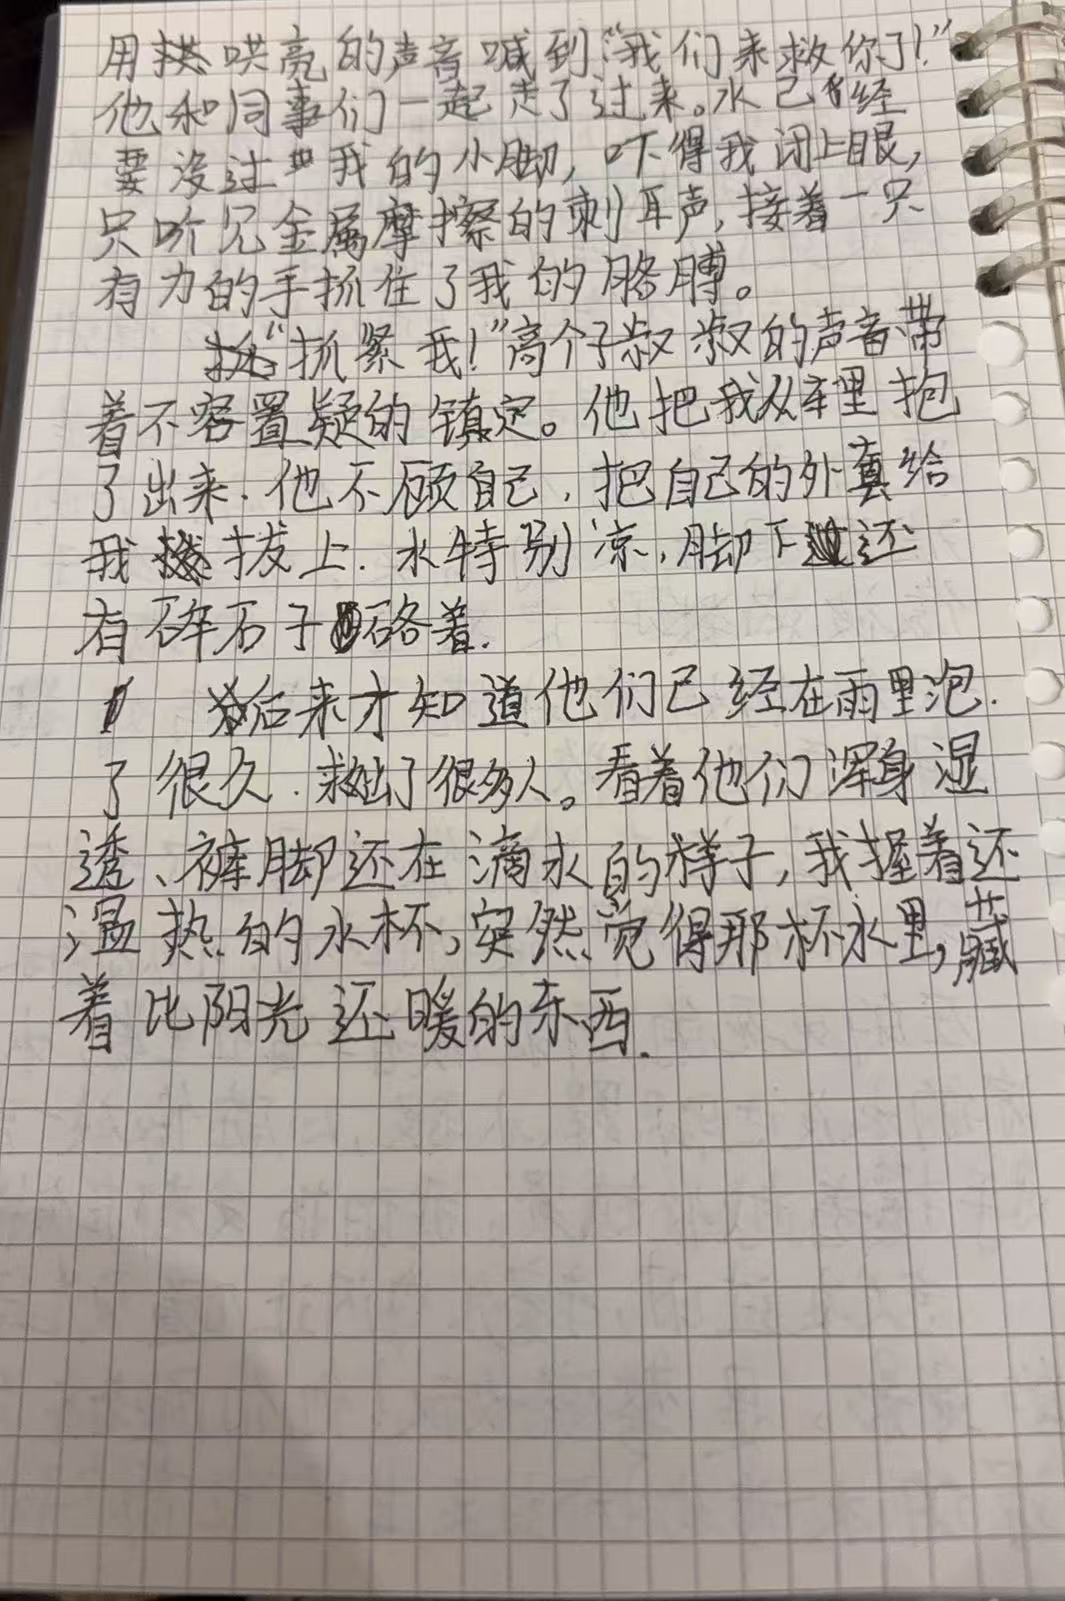 用哄亮的声音喊到“我们来救你了!”
他和同事们一起走了过来。水已经
要没过我的小脚,吓得我闭上眼,
只听见金属摩擦的刺耳声,接着一只
有力的手抓住了我的胳膊。
“抓紧我!”高个子叔叔的声音带
着不容置疑的镇定。他把我从车里抱
了出来.他不顾自己,把自己的外真给
我拔上.水特别凉,脚下还
有碎石子硌着.
后来才知道他们已经在雨里泡.
了很久.救出了很多人。看着他们浑身湿
透、裤脚还在滴水的样子,我握着还
温热的水杯,突然觉得那杯水里,藏
着比阳光还暖的东西.